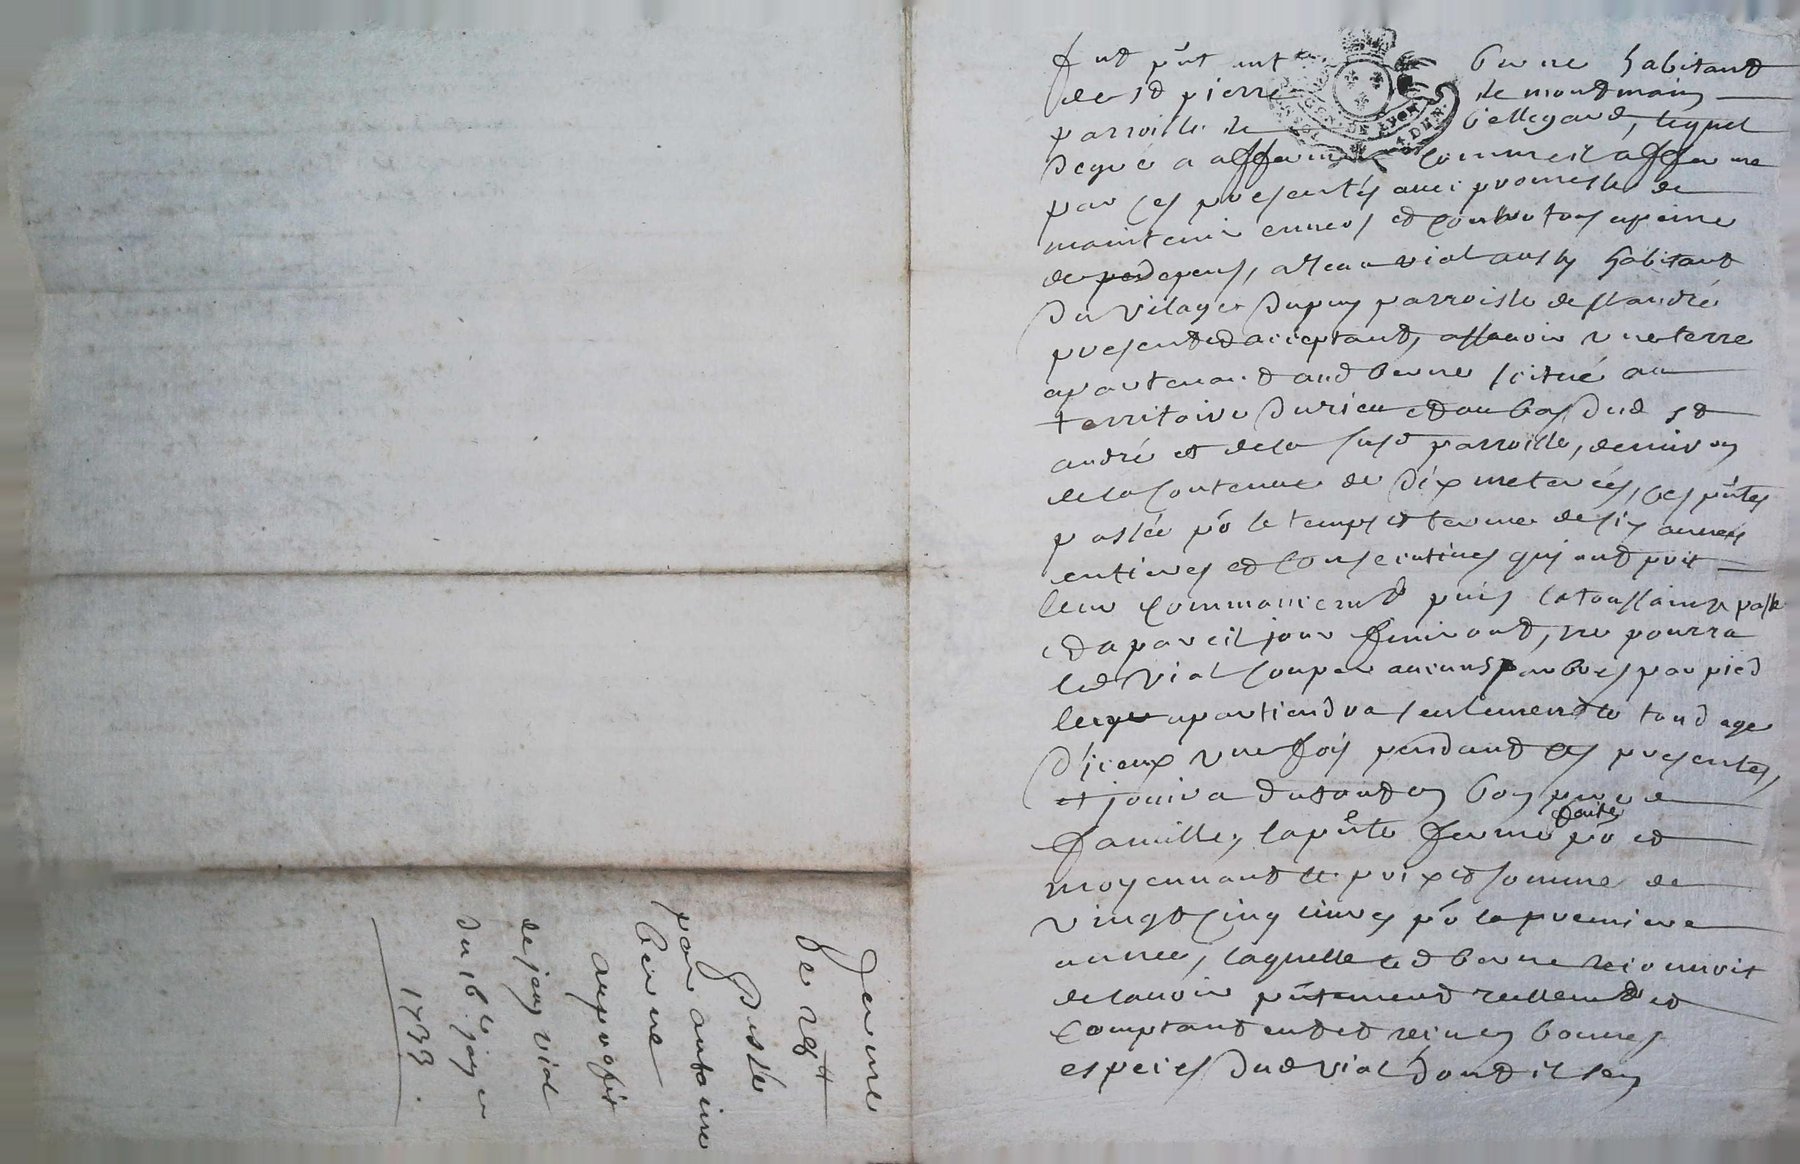 fut pnt ant berne habitant
de st pierre de montmain
parroisse de bellegard, lequel
de gré a affermé comme il afferme
par ces presentes avec promesse de
maintenir envers et contre tous a peine
de depens, a Jean vial aussy habitant
du vilage dupuy parroisse de st andré
present et acceptant, assavoir une terre
apartenant aud berne scitué au
territoire durieu et au bas dud st
andré et de la susd parroisse, denviron
de la contenue de dix meterées, ces pntes
passée po le temps et terme de six années
entieres et consecutives qui ont prit
leur commancemt puis la toussaint passé
et a pareil jour finiront, ne pourra
led vial couper aucuns arbres par pied
luy apartiendra seulement le tondage
d'iceux une fois pendant ces presentes,
et jouira du tout en bon pere de
famille, la pnte ferme faite po et
moyennant le prix et somme de
vingt cinq livres po la premiere
année, laquelle led berne reconnoit
de lavoir pntement reellemt et
comptant eut et receu en bonnes
especes dud vial dont il sen
ferme
de 25 lt
passée
par antoine
berne
au profit
de jean vial
du 16e janer
1733.
GEN. DE LYON
4. DEN.